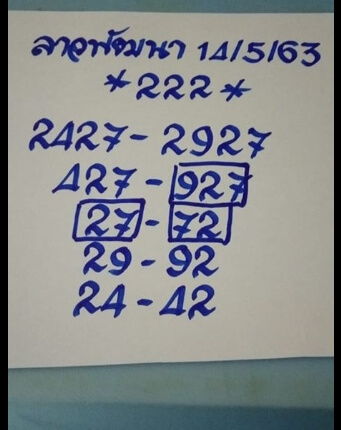 ลาวพัฒนา 14/5/63
*222*
2427-2927
427-927
27-72
29-92
24-42